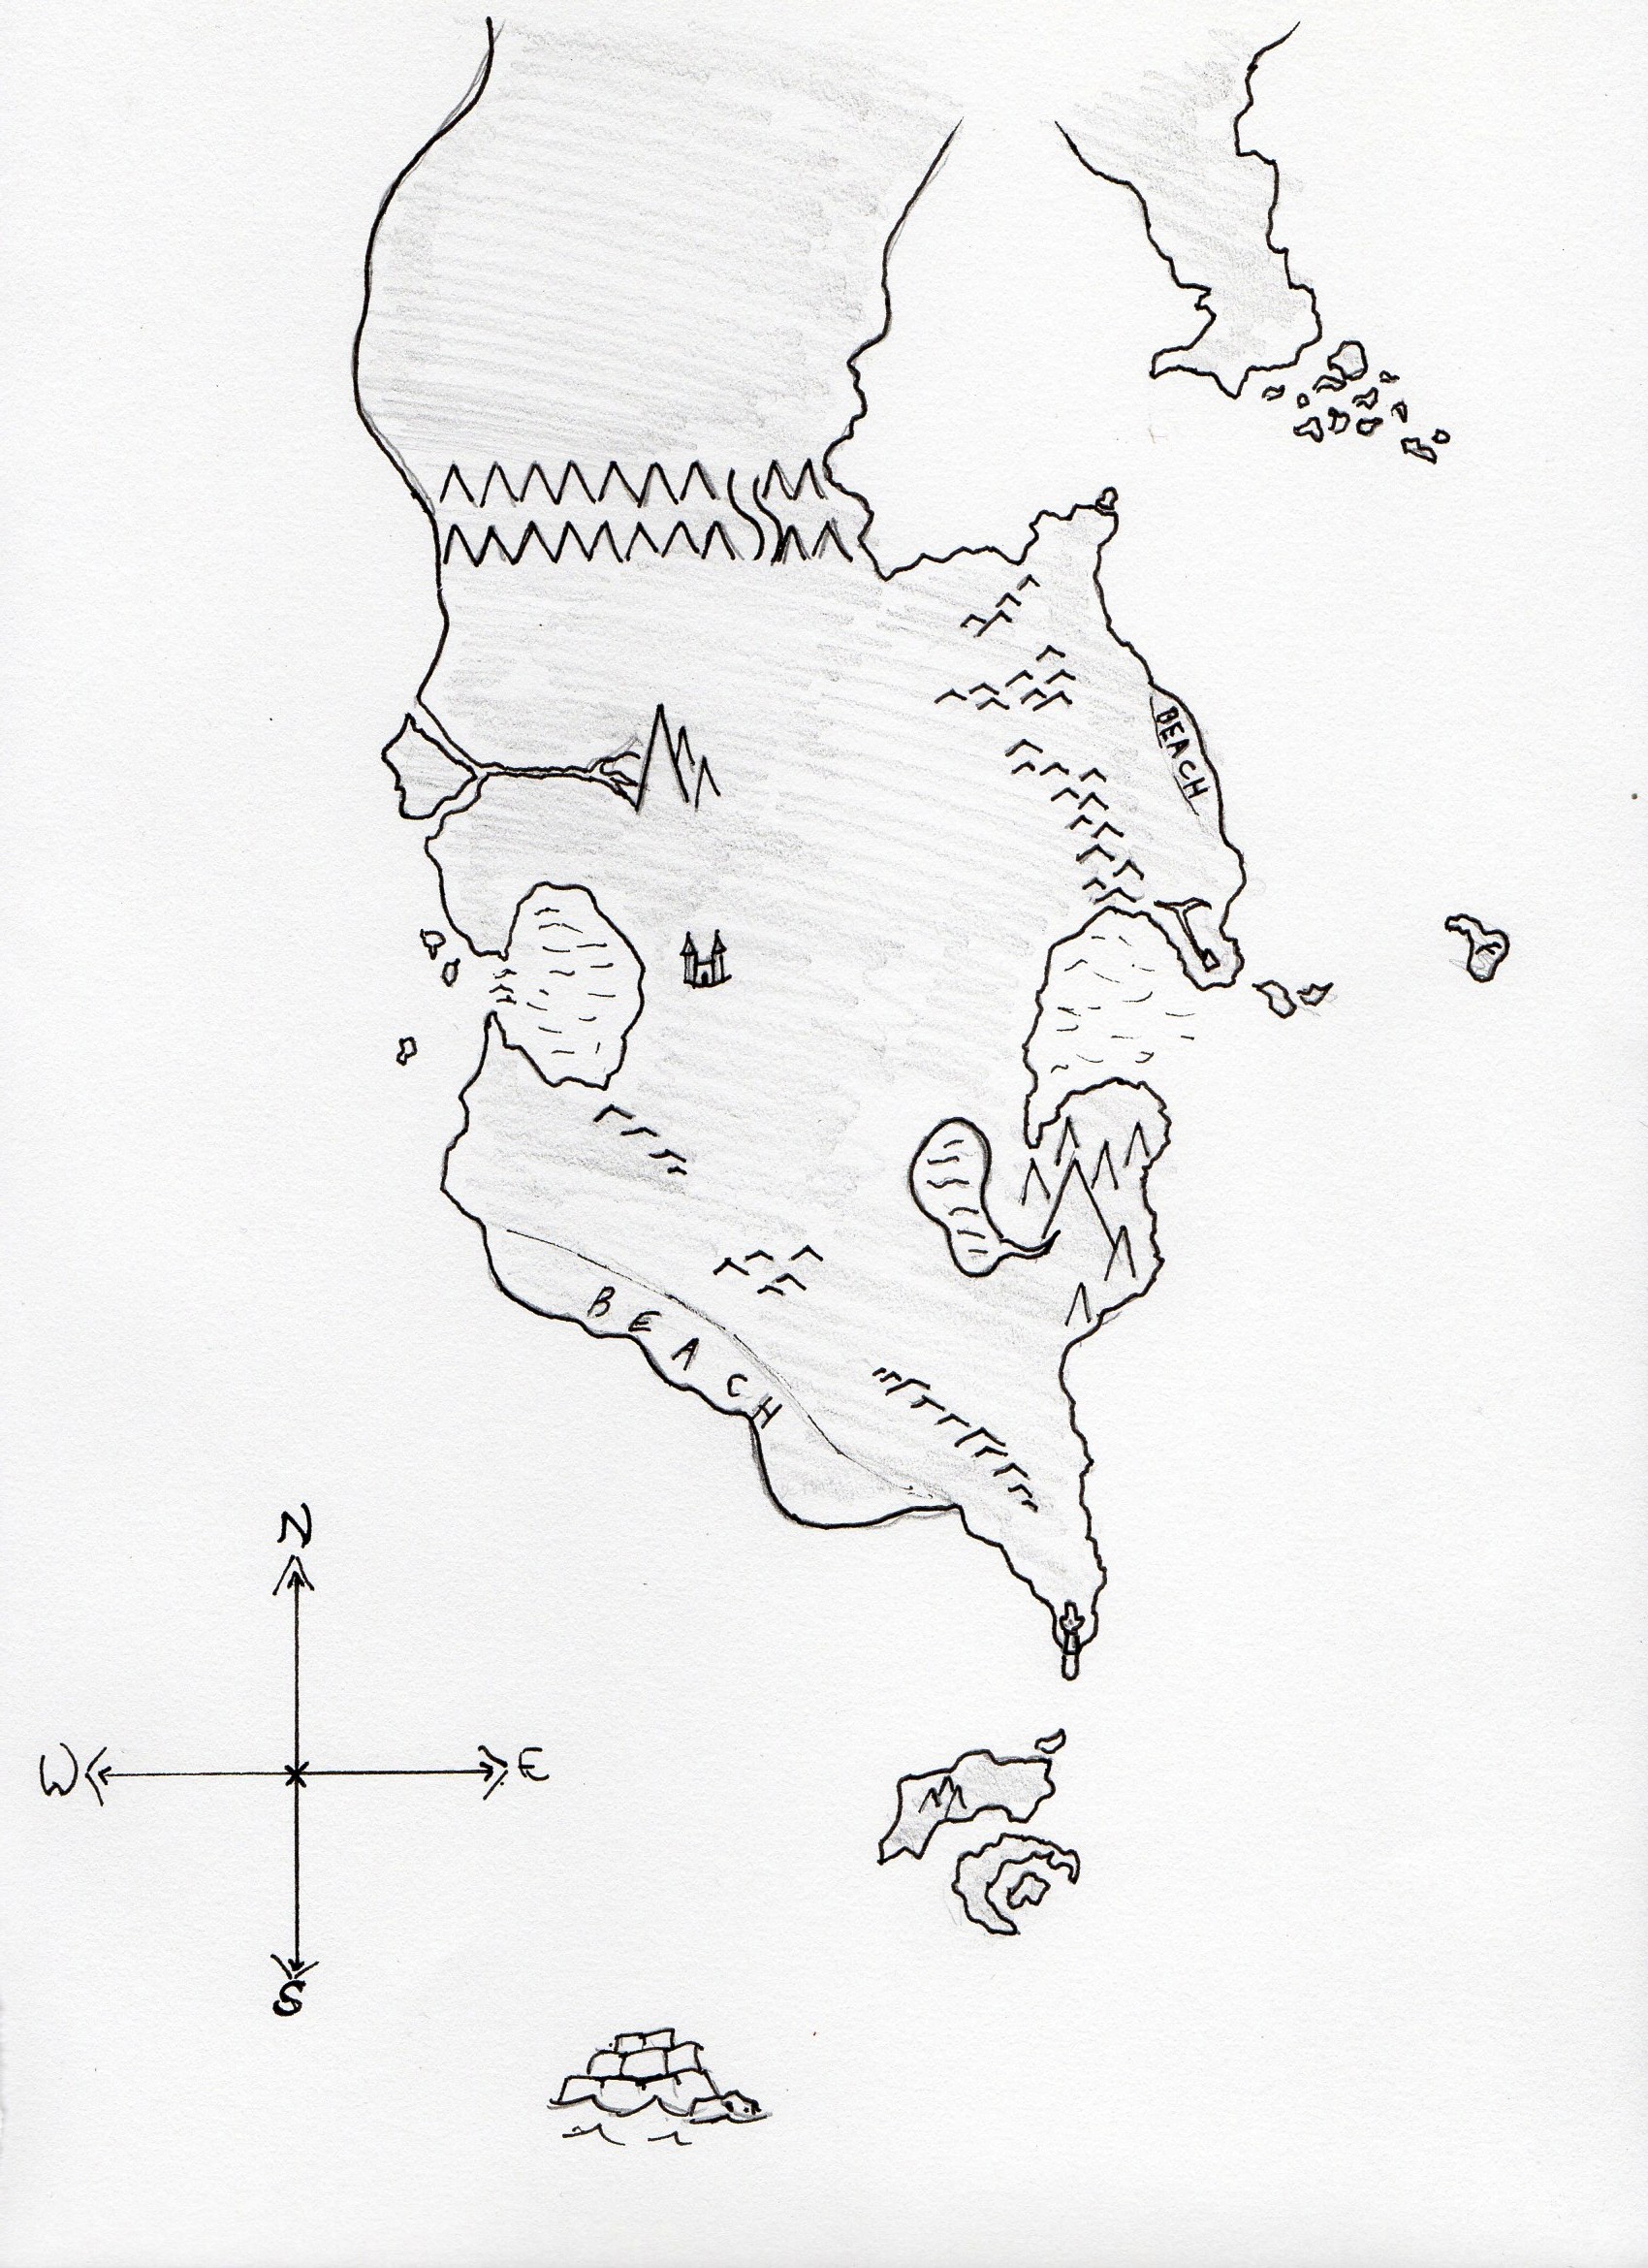 BEACH
BEACH
N
W E
S